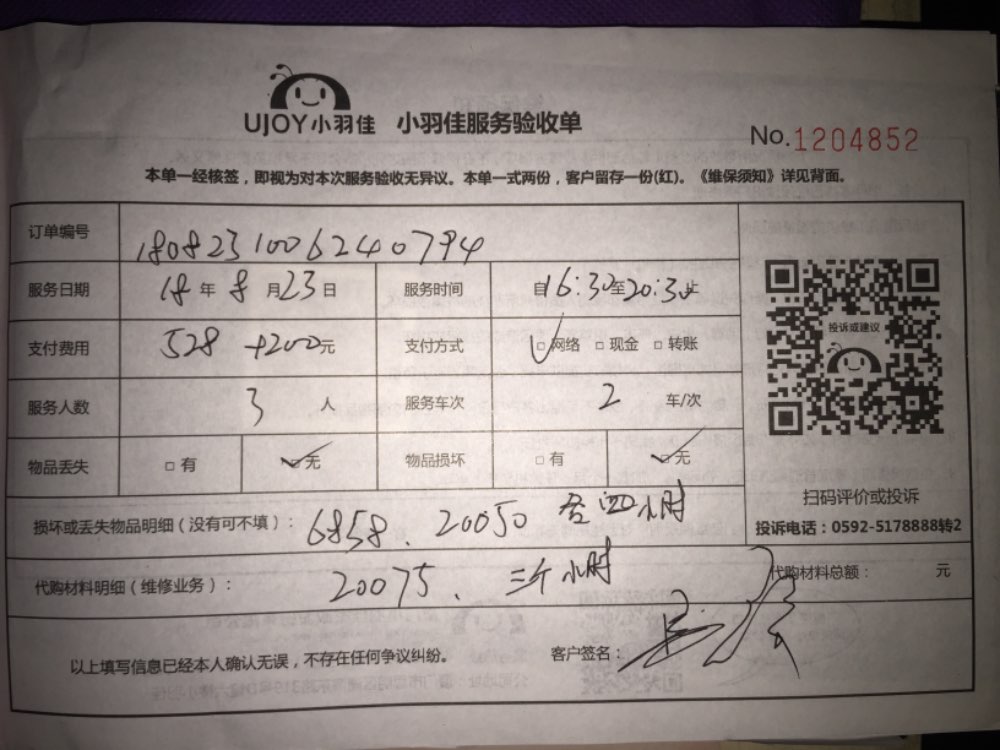 UJOY小羽佳 小羽佳服务验收单
No.1204852
本单一经核签，即视为对本次服务验收无异议。本单一式两份，客户留存一份(红)。《维保须知》详见背面。
订单编号 1808231006240794
服务日期 18年8月23日 服务时间 自16:30至20:30止
支付费用 528+200元 支付方式 □网络 □现金 □转账
服务人数 3人 服务车次 2车/次
物品丢失 □有 □无 物品损坏 □有 □无
投诉或建议
扫码评价或投诉
投诉电话：0592-5178888转2
损坏或丢失物品明细（没有可不填）：6858、20050 各四小时
代购材料明细（维修业务）：20075、三个小时 代购材料总额： 元
以上填写信息已经本人确认无误，不存在任何争议纠纷。 客户签名：